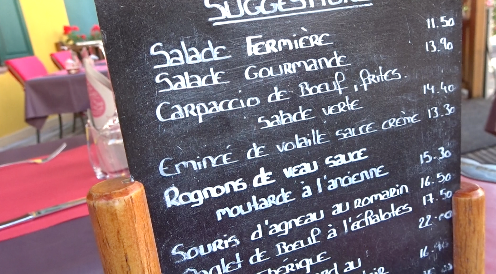 SUGGESTIONS
Salade Fermière 11.50
Salade Gourmande 13.90
Carpaccio de Boeuf, frites
salade verte 14.40
Emincé de volaille sauce crème 13.30
Rognons de veau sauce
moutarde à l'ancienne 15.30
Souris d'agneau au romarin 16.50
de Boeuf à l'échalotes 17.50
22.00
au 16.